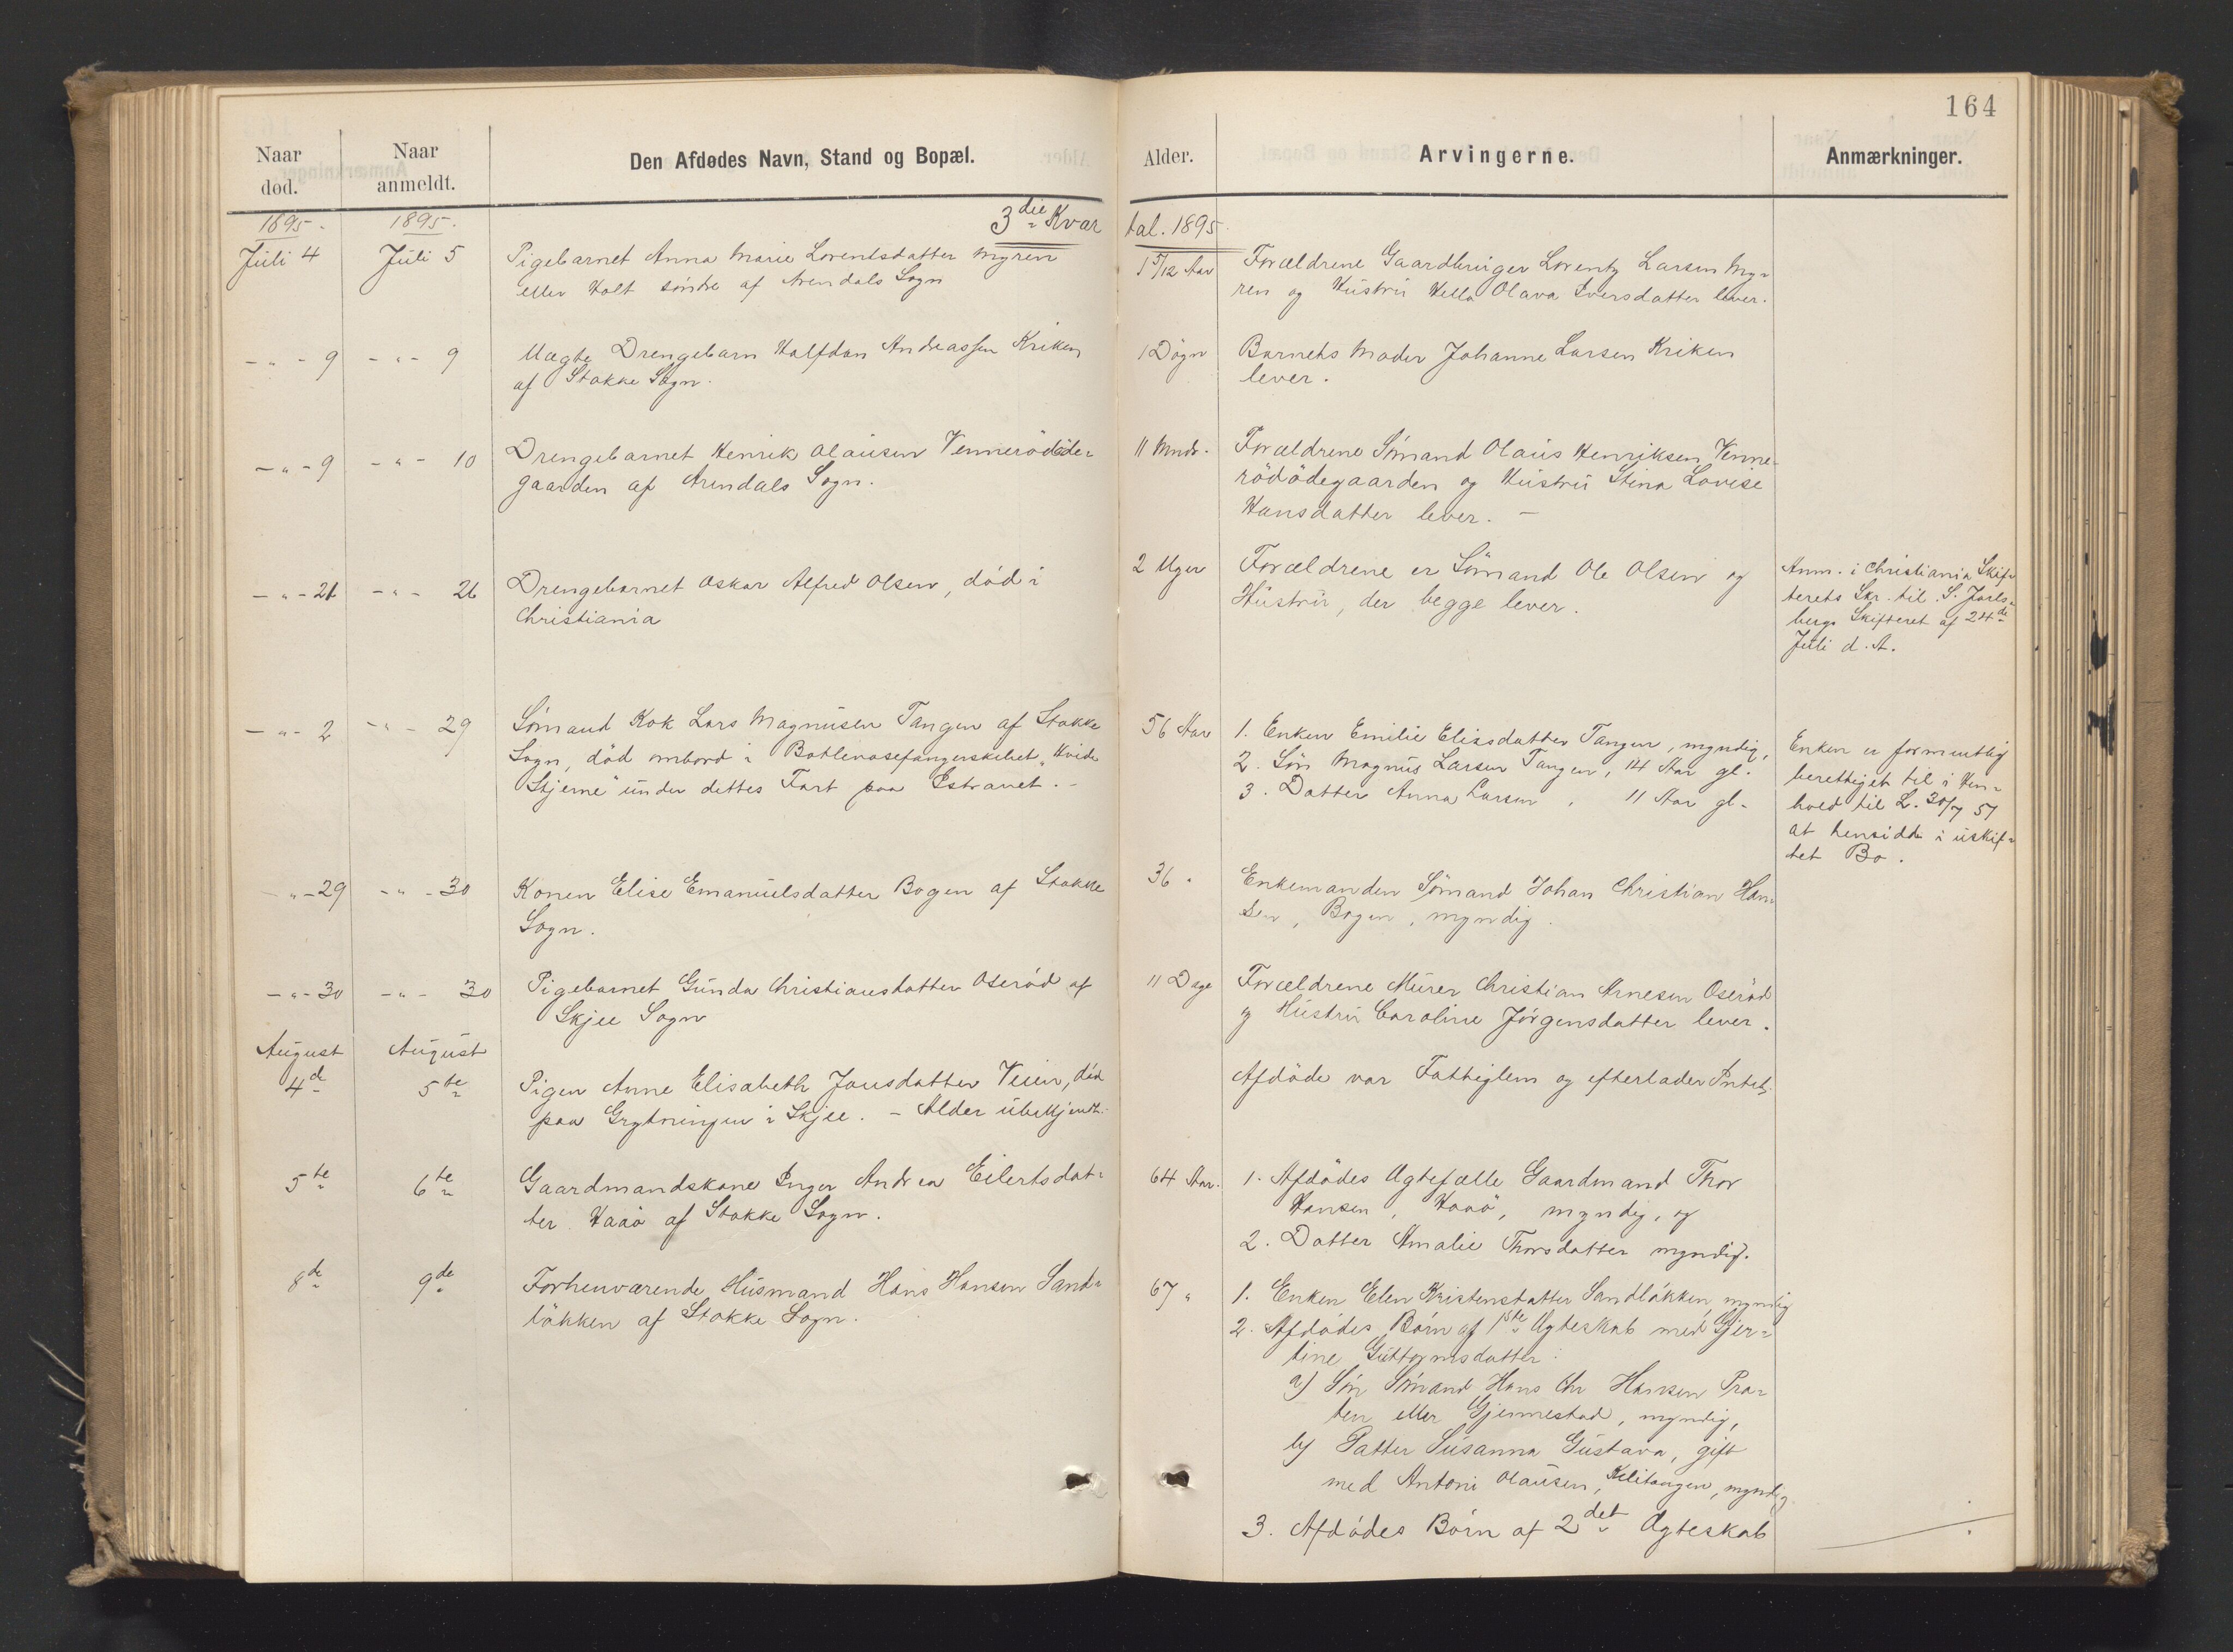 164
Naar død.
Naar anmeldt.
Den Afdødes Navn, Stand og Bopæl.
Alder.
Arvingerne.
Anmærkninger.
3die Kvartal. 1895.
1895.
1895.
Juli 4
Juli 5
Pigebarnet Anna Marie Lorentsdatter Myren
eller Holt söndre af Arendals Sogn
1 5/12 Aar
Forældrene Gaardbruger Lorentz Larsen My-
ren og Hustru Hella Olava Iversdatter lever.
- " - 9
- " - 9
Uægte Drengebarn Halfdan Andreassen Kriken
af Stokke Sogn.
1 Dögn
Barnets Moder Johanne Larsen Kriken
lever.
- " - 9
- " - 10
Drengebarnet Henrik Olausen Vennerödöde-
gaarden af Arendals Sogn.
11 Mndr.
Forældrene Sömand Olaus Henriksen Venne-
rödödegaarden og Hustru Stina Lovise
Hansdatter lever. -
- " - 21
- " - 26
Drengebarnet Oskar Alfred Olsen, död i
Christiania
2 Uger
Forældrene er Sömand Ole Olsen og
Hustru, der begge lever.
Anm. i Christiania Skif-
terets Skr. til S. Jarls-
bergs Skifteret af 24de
Juli d. A.
- " - 2
- " - 29
Sömand Kok Lars Magnusen Tangen af Stokke
Sogn, död ombord i Bottlenosefangerskibet "Hvide
Stjerne" under dettes Fart paa Ishavet. -
56 Aar
1. Enken Emilie Eliasdatter Tangen, myndig,
2. Sön Magnus Larsen Tangen, 14 Aar gl.
3. Datter Anna Larsen, 11 Aar gl.
Enken er formentlig
berettiget til i Hen-
hold til L. 30/7 51
at hensidde i uskif-
tet Bo.
- " - 29
- " - 30
Konen Elise Emanuelsdatter Bogen af Stokke
Sogn.
36 "
Enkemanden Sömand Johan Christian Han-
sen, Bogen, myndig.
- " - 30
- " - 30
Pigebarnet Gunda Christiansdatter Oseröd af
Skjee Sogn
11 Dage
Forældrene Murer Christian Arnesen Oseröd
og Hustru Caroline Jörgensdatter lever.
August
4de
August
5te
Pigen Anne Elisabeth Jonsdatter Veien, död
paa Grytningen i Skjee. - Alder ubekjendt.
Afdöde var Fattiglem og efterlader Intet.
5te
6te
Gaardmandskone Inger Andrea Eilertsdat-
ter Haaö af Stokke Sogn.
64 Aar.
1. Afdödes Ægtefælle Gaardmand Thor
Hansen, Haaö, myndig, og
2. Datter Amalie Thorsdatter myndig.
8de
9de
Forhenværende Husmand Hans Hansen Sand-
lökken af Stokke Sogn.
67 "
1. Enken Elen Kristensdatter Sandlökken, myndig
2. Afdödes Börn af 1ste Ægteskab med Gjer-
tine Guttormsdatter:
a) Sön Sömand Hans Chr Hansen Pra-
ten eller Gjennestad, myndig,
b) Datter Susanna Gustava, gift
med Antoni Olausen, myndig
3. Afdödes Börn af 2det Ægteskab